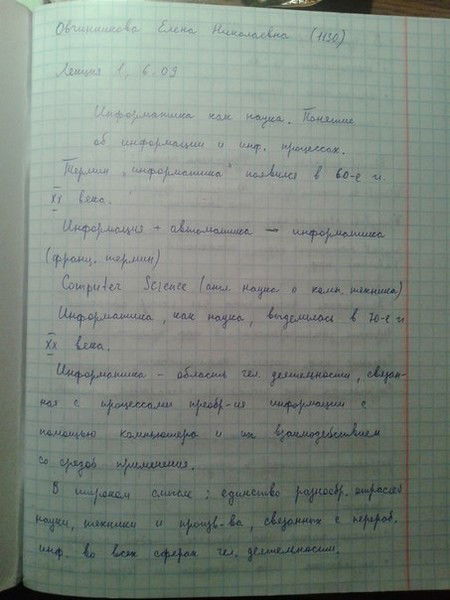 Овчинникова Елена Николаевна (1130)
Лекция 1, 6.09
Информатика как наука. Понятие
об информации и инф. процессах.
Термин "информатика" появился в 60-е гг.
XX века.
Информация + автоматика — информатика
(франц. термин)
Computer Science (англ. наука о комп. техника)
Информатика, как наука, выделилась в 70-е гг
XX века.
Информатика – область чел. деятельности, связан-
ная с процессами преобр-ия информации с
помощью компьютера и их взаимодействием
со средой применения.
В широком смысле: единство разнообр. отраслей
науки, техники и произв-ва, связанных с перераб.
инф. во всех сферах чел. деятельности.